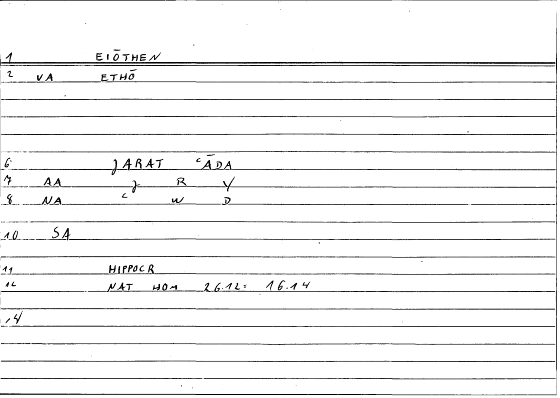 1 EIŌTHEN
2 VA ETHŌ
6 JARAT ʿĀDA
7 AA J R Y
8 NA ʿ W D
10 SA
11 HIPPOCR
12 NAT HOM 26.12 = 16.14
14